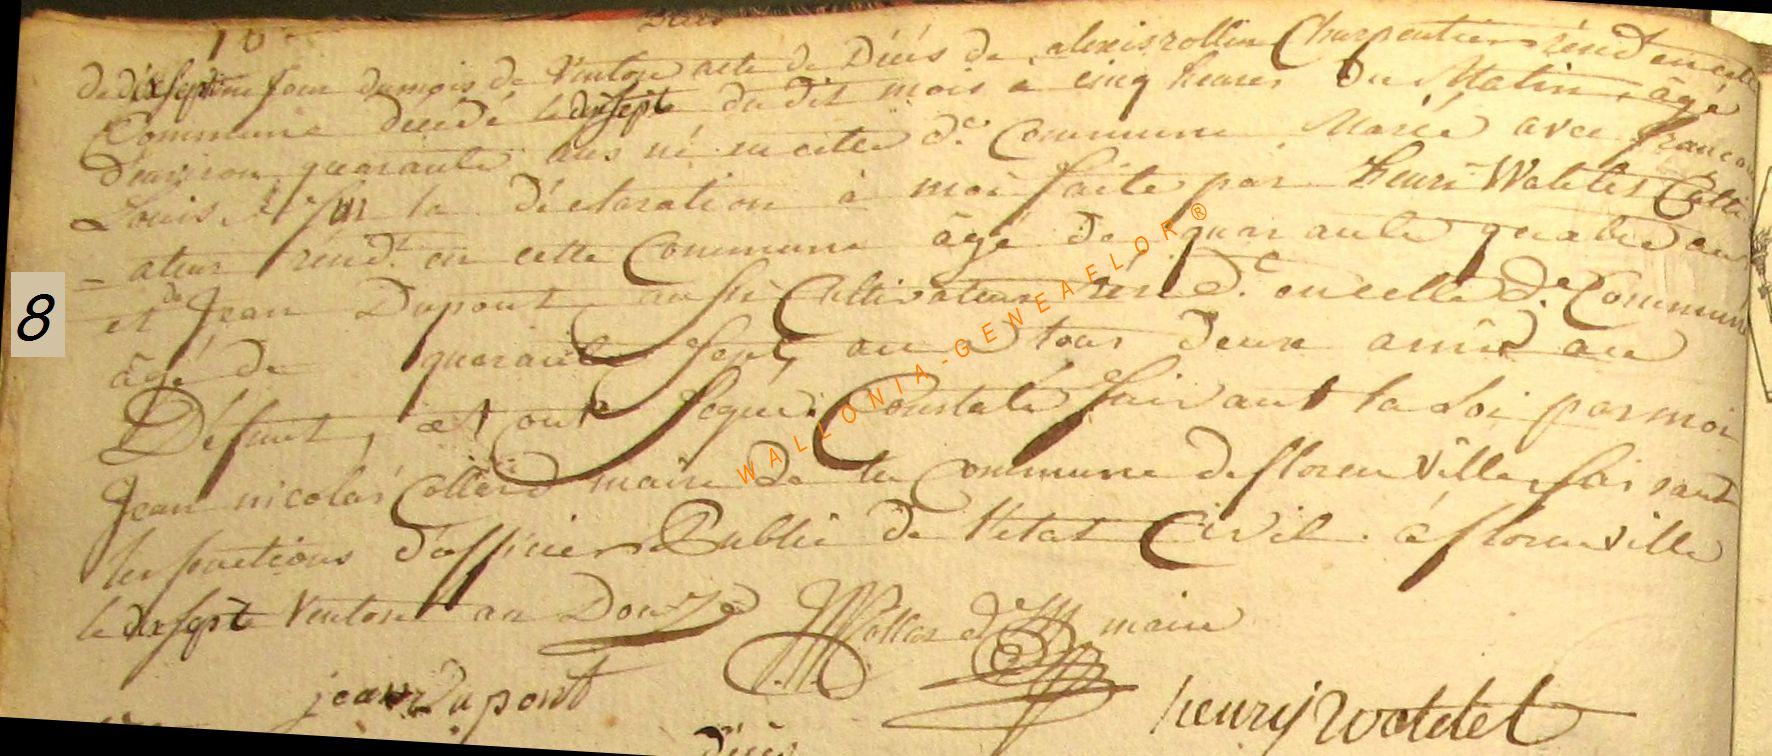 10
De dixseptieme Jour du mois de Ventose acte de Décès de alexis rollin Charpentier résid.t en cette
Commune decedé le dixsept du dit mois à cinq heures Du Matin, âgé
D'environ quarante ans né en cette d.e Commune Marié avec francoi
Louis, Sur la déclaration à moi faite par henri Watelet Culti
= ateur resid.t en cette Commune âgé De quarante quatre an
et de Jean Dupont aussi Cultivateur rési d.t en cette d.e Commune
âgé de quarante sept, ans tous deux amis au
Défunt, et ont signé. Constaté Suivant la Loi par moi
Jean nicolas Collard maire De la Commune de florenville faisant
les fonctions d'officier Public de l'etat Civil. à florenville
le dixsept Ventose an Douze
maire
jean Dupont
henry Watelet
Décès
8
WALLONIA-GENEAFLOR®